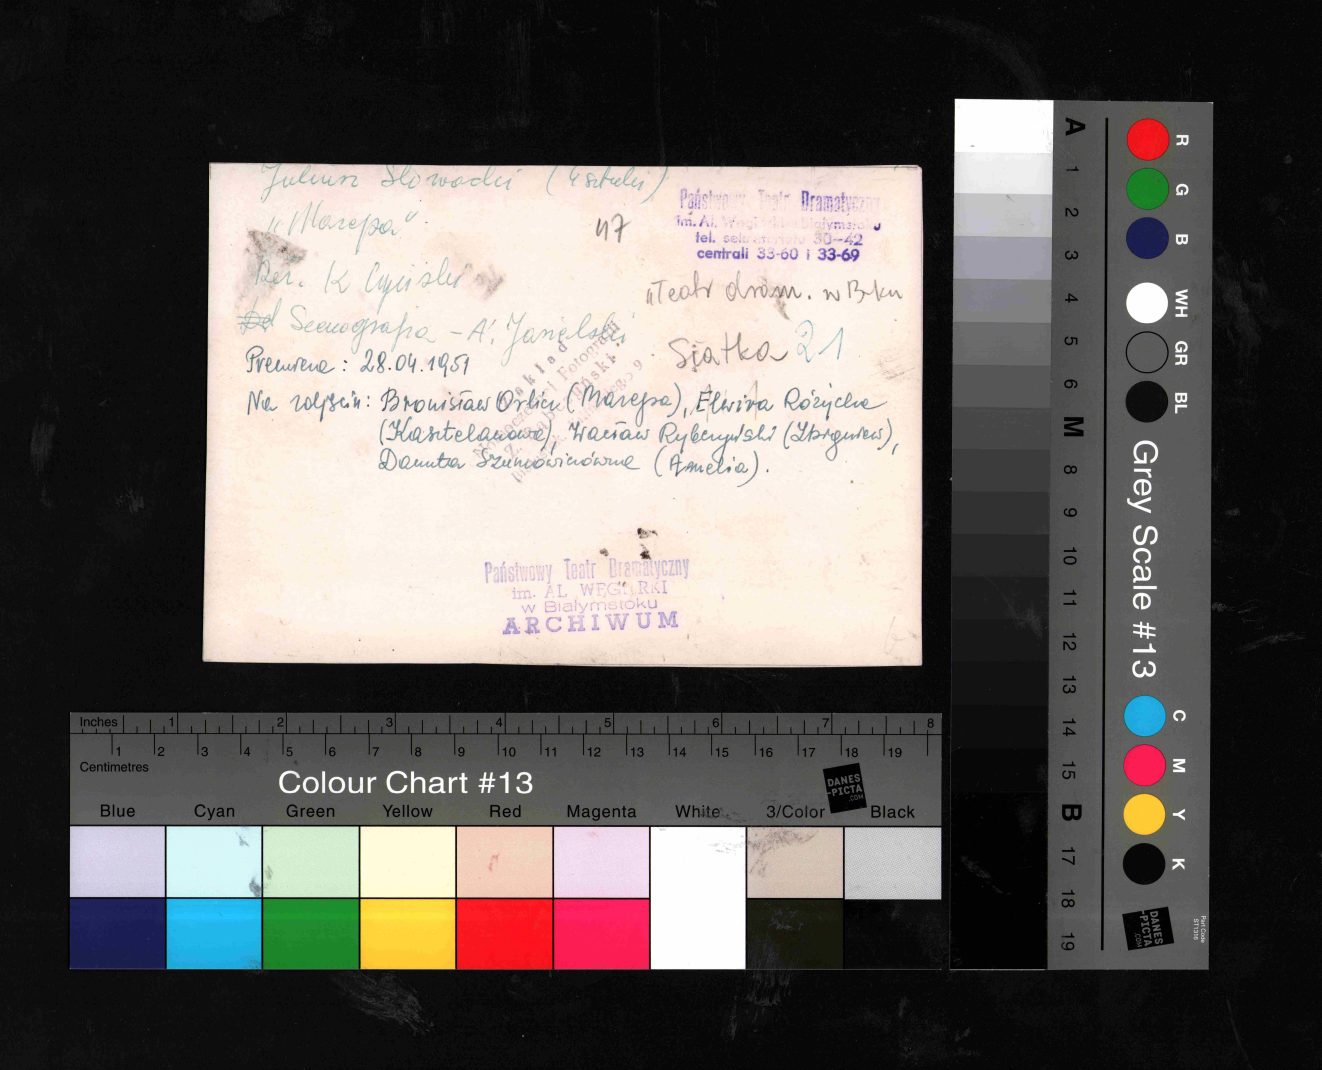 Juliusz Słowacki (4 sztuki)
"Mazepa"
47
Państwowy Teatr Dramatyczny
im. Al. Węgierki w Białymstoku
tel. sekretariatu 30-42
centrali 33-60 i 33-69
Reż. K
"Teatr dram. w B-ku
Scenografia - A.
Siatka 21
Premiera: 28.04.1951
Zakład
Fotografii
Na zdjęciu: Bronisław Orlicz (Mazepa), Elwira Różycka
(Kasztelanowa), Wacław Rybczyński (Zbigniew),
Danuta Szumowiczówna (Amelia).
Państwowy Teatr Dramatyczny
im. AL. WĘGIERKI
w Białymstoku
ARCHIWUM
Inches 1 2 3 4 5 6 7 8
1 2 3 4 5 6 7 8 9 10 11 12 13 14 15 16 17 18 19
Centimetres
Colour Chart #13
DANES
-PICTA
.COM
Blue Cyan Green Yellow Red Magenta White 3/Color Black
A 1 2 3 4 5 6 M 8 9 10 11 12 13 14 15 B 17 18 19
R G B WH GR BL
Grey Scale #13
C M Y K
DANES
-PICTA
.COM
Part Code
ST1316